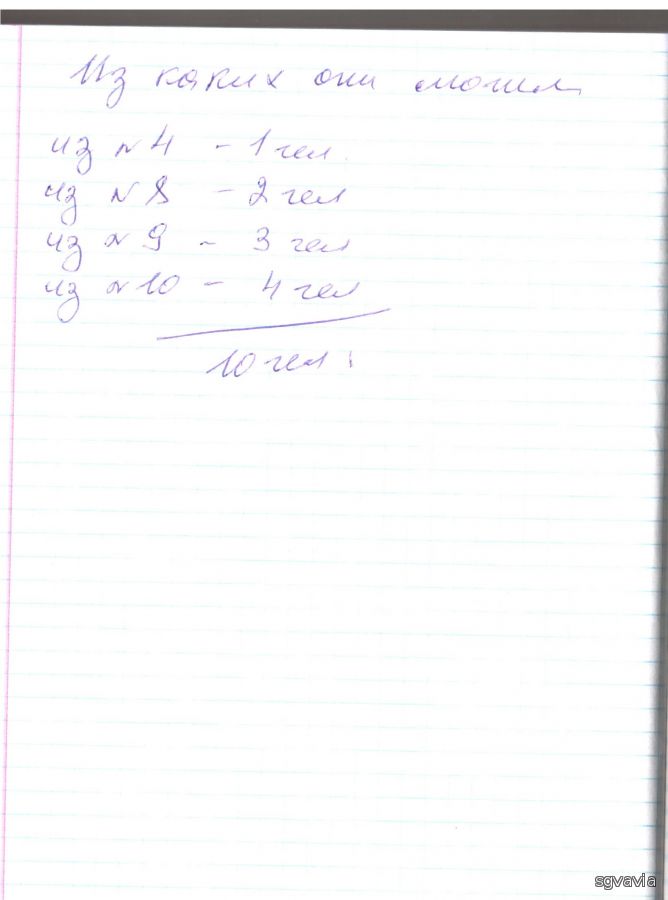 Из каких они могил
из N 4 - 1 чел.
из N 8 - 2 чел
из N 9 - 3 чел
из N 10 - 4 чел
10 чел.
sgvavia